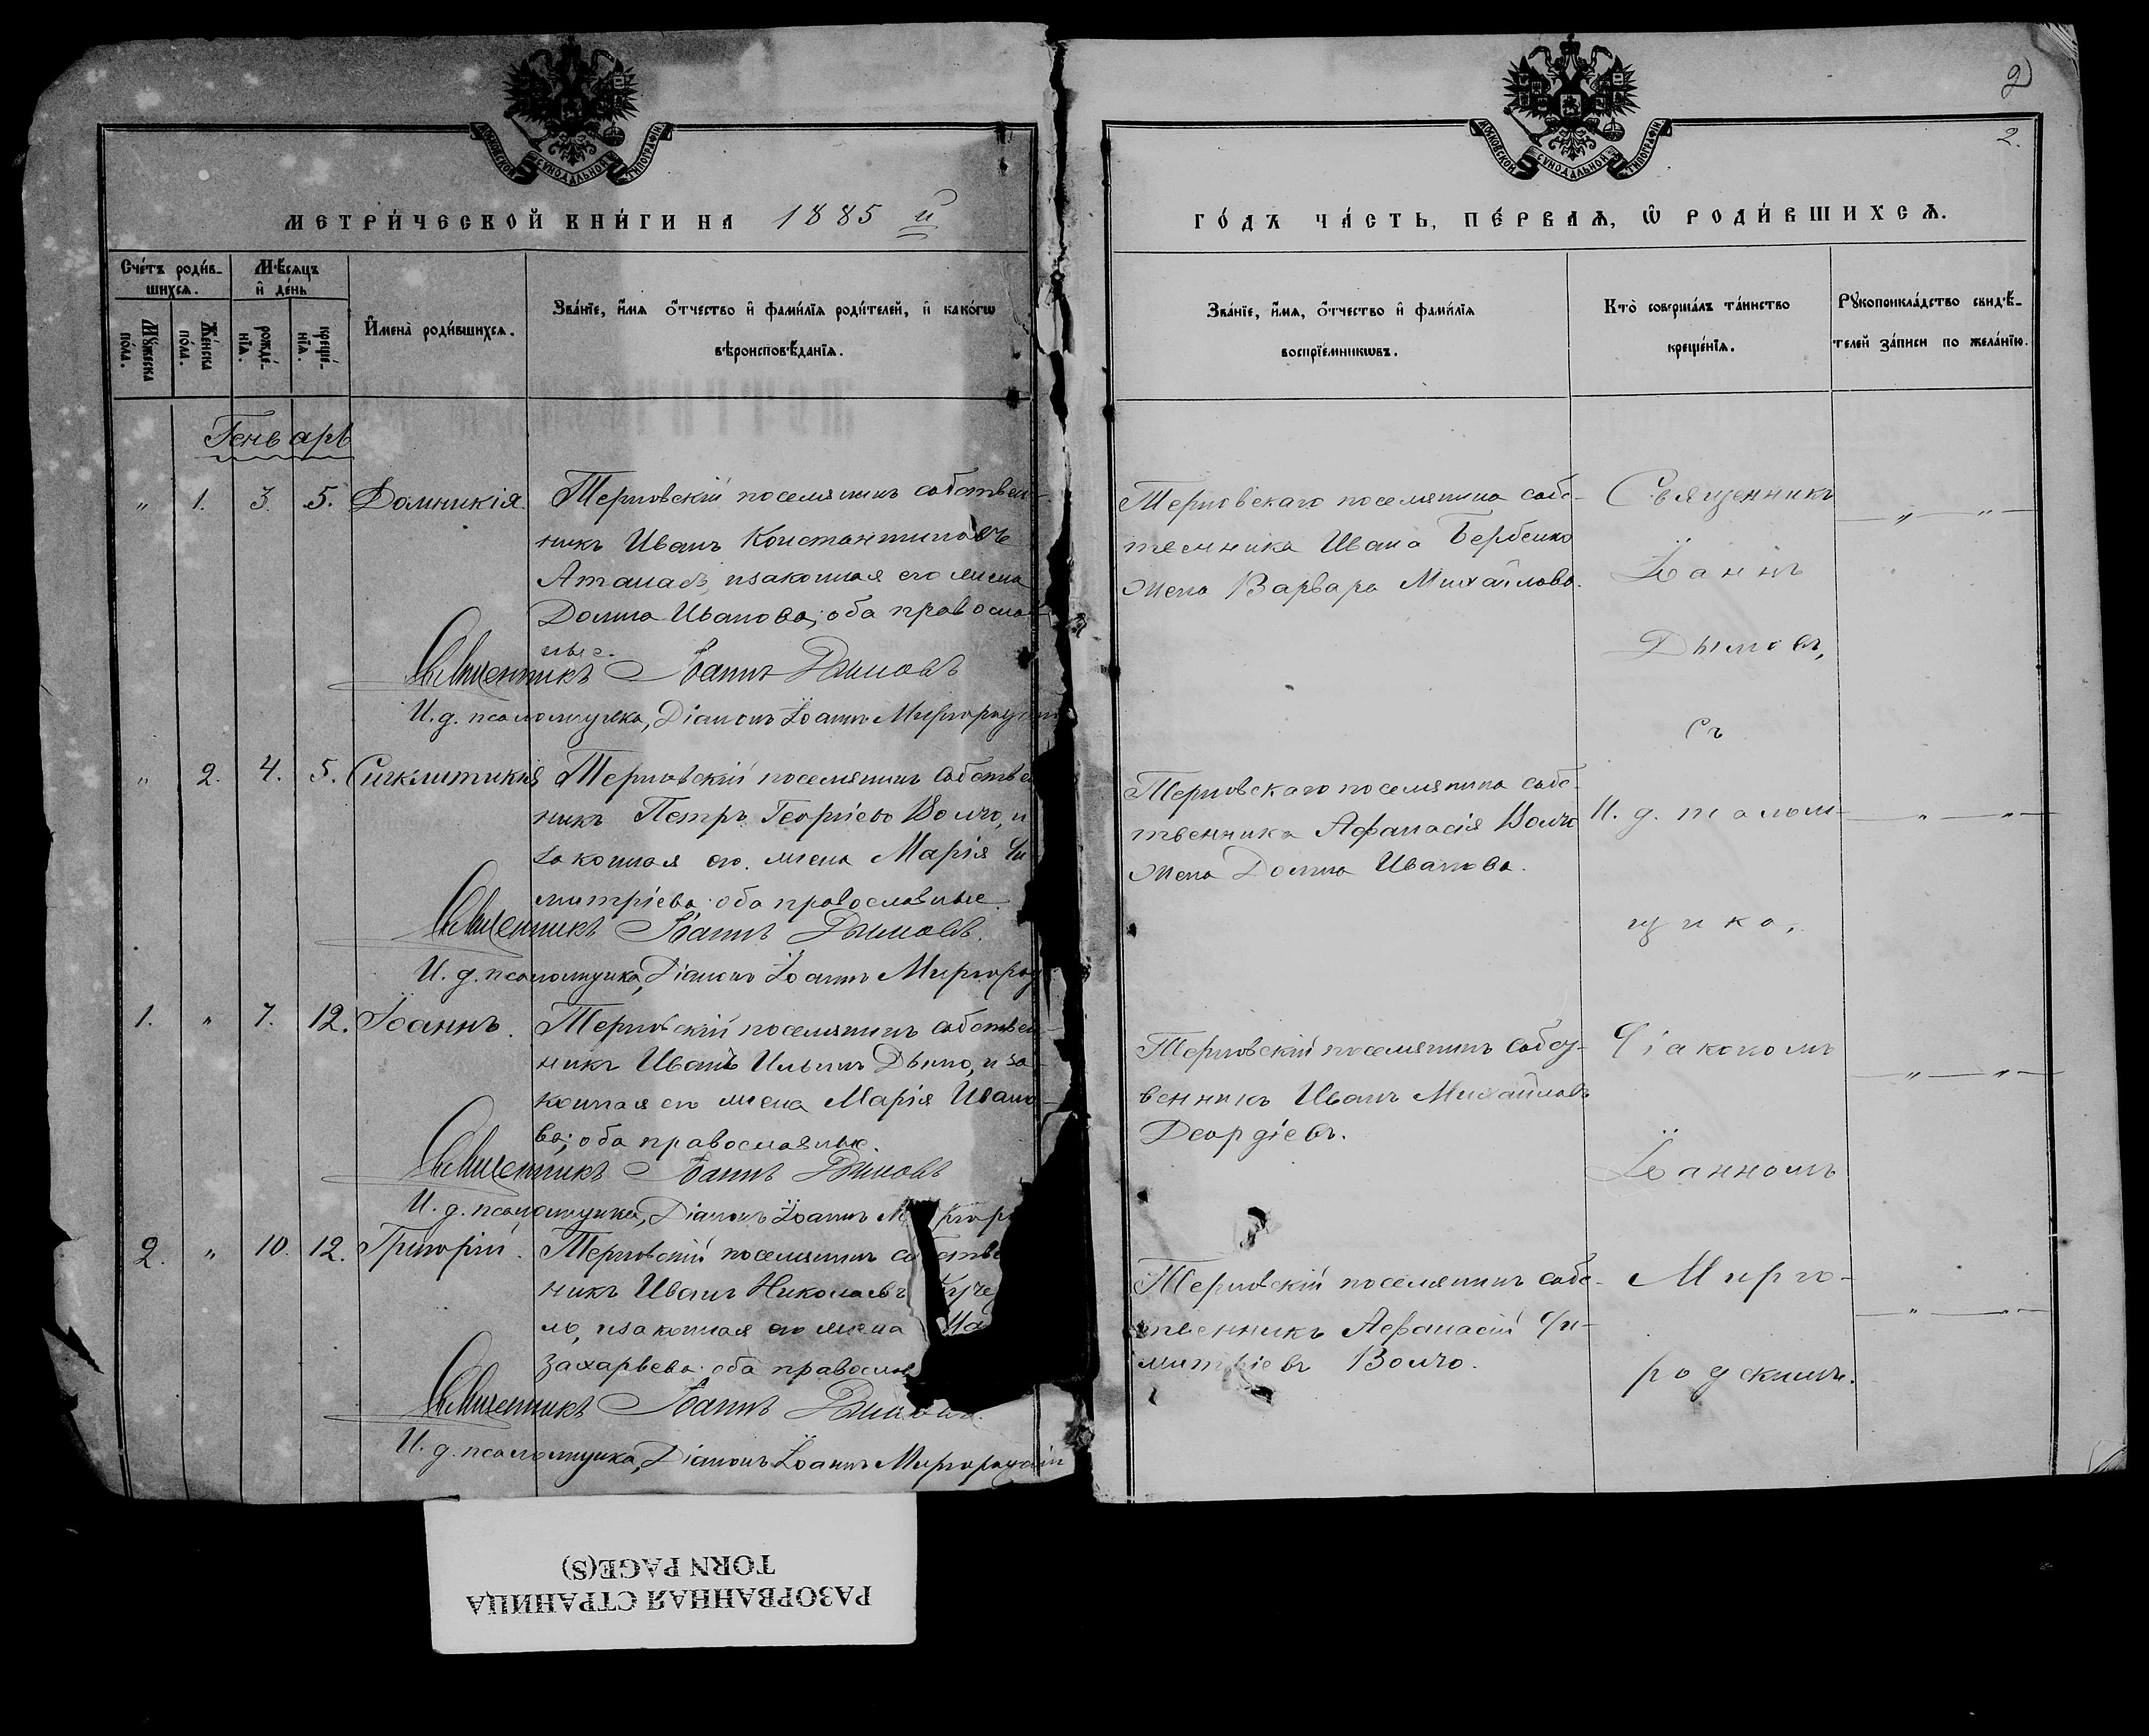 МОСКОВСКОЙ СУНОДАЛЬНОЙ ТИПОГРАФІИ
МЕТРИ́ЧЕСКОЙ КНИ́ГИ НА 1885 й
Сче́тъ роди́в-
шихсѧ.
Мѣ́сяцъ
и҆ де́нь
Мꙋ́жеска
по́ла.
Же́нска
по́ла.
рожде́-
нїѧ.
креще́-
нїѧ.
И҆мена̀ роди́вшихсѧ.
Зва́нїе, и҆́мѧ ѻ҆́тчество и҆ фами́лїѧ роди́телей, и҆ како́гѡ
вѣроисповѣ́данїѧ.
Генварь
" 1. 3. 5. Домникія.
Терновскій поселянинъ собствен-
никъ Иванъ Константиновъ
Атанасъ, и законная его жена
Домна Иванова; оба православ
ные.
Священникъ Іоаннъ Дымовъ
И. д. псаломщика, Діаконъ Іоаннъ Миргородскій
" 2. 4. 5. Сигклитикія
Терновскій поселянинъ собствен
никъ Петръ Георгіевъ Волчо, и
законная его жена Марія Ди-
митріева: оба православные.
Священникъ Іоаннъ Дымовъ.
И. д. псаломщика, Діаконъ Іоаннъ Миргород
1. " 7. 12. Іоаннъ.
Терновскій поселянинъ собствен-
никъ Иванъ Ильинъ Дымо, и за-
конная его жена Марія Ивано-
ва; оба православные.
Священникъ Іоаннъ Дымовъ
И. д. псаломщика, Діаконъ Іоаннъ Миргор
2. " 10. 12. Григорій.
Терновскій поселянинъ собстве
никъ Иванъ Николаевъ
и законная его жена Ма
Захарьева: оба православ
Священникъ Іоаннъ Дымовъ.
И. д. псаломщика, Діаконъ Іоаннъ Миргородскій
2
МОСКОВСКОЙ СУНОДАЛЬНОЙ ТИПОГРАФІИ
2.
ГО́ДЪ ЧА́СТЬ, ПЕ́РВАѦ, Ѡ҆ РОДИ́ВШИХСѦ.
Зва́нїе, и҆́мѧ, ѻ҆́тчество и҆ фами́лїѧ
воспрїе́мникѡвъ.
Кто̀ соверша́лъ та́инство
креще́нїѧ.
Рꙋкоприкла́дство свидѣ́-
телей за́писи по жела́нїю.
Терновскаго поселянина собс-
твенника Ивана Бербенко
жена Варвара Михайлова.
Терновскаго поселянина собс-
твенника Афанасія Волчо
жена Домна Иванова.
Терновскій поселянинъ собст-
венникъ Иванъ Михайловъ
Деордіевъ.
Терновскій поселянинъ собс-
твенникъ Афанасій Ди-
митріевъ Волчо.
Священникъ
Іоаннъ
Дымовъ,
съ
И. д. псалом-
щика,
Діакономъ
Іоанномъ
Мирго-
родскимъ.
РАЗОРВАННАЯ СТРАНИЦА
TORN PAGE(S)